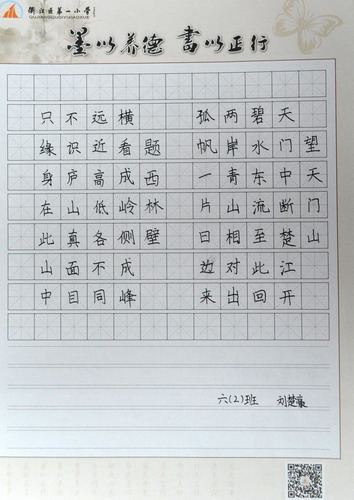 衢江区第一小学
QUJIANGQUDIYIXIAOXUE
墨以养德 書以正行
望天门山
天门中断楚江开
碧水东流至此回
两岸青山相对出
孤帆一片日边来
题西林壁
横看成岭侧成峰
远近高低各不同
不识庐山真面目
只缘身在此山中
六(2)班